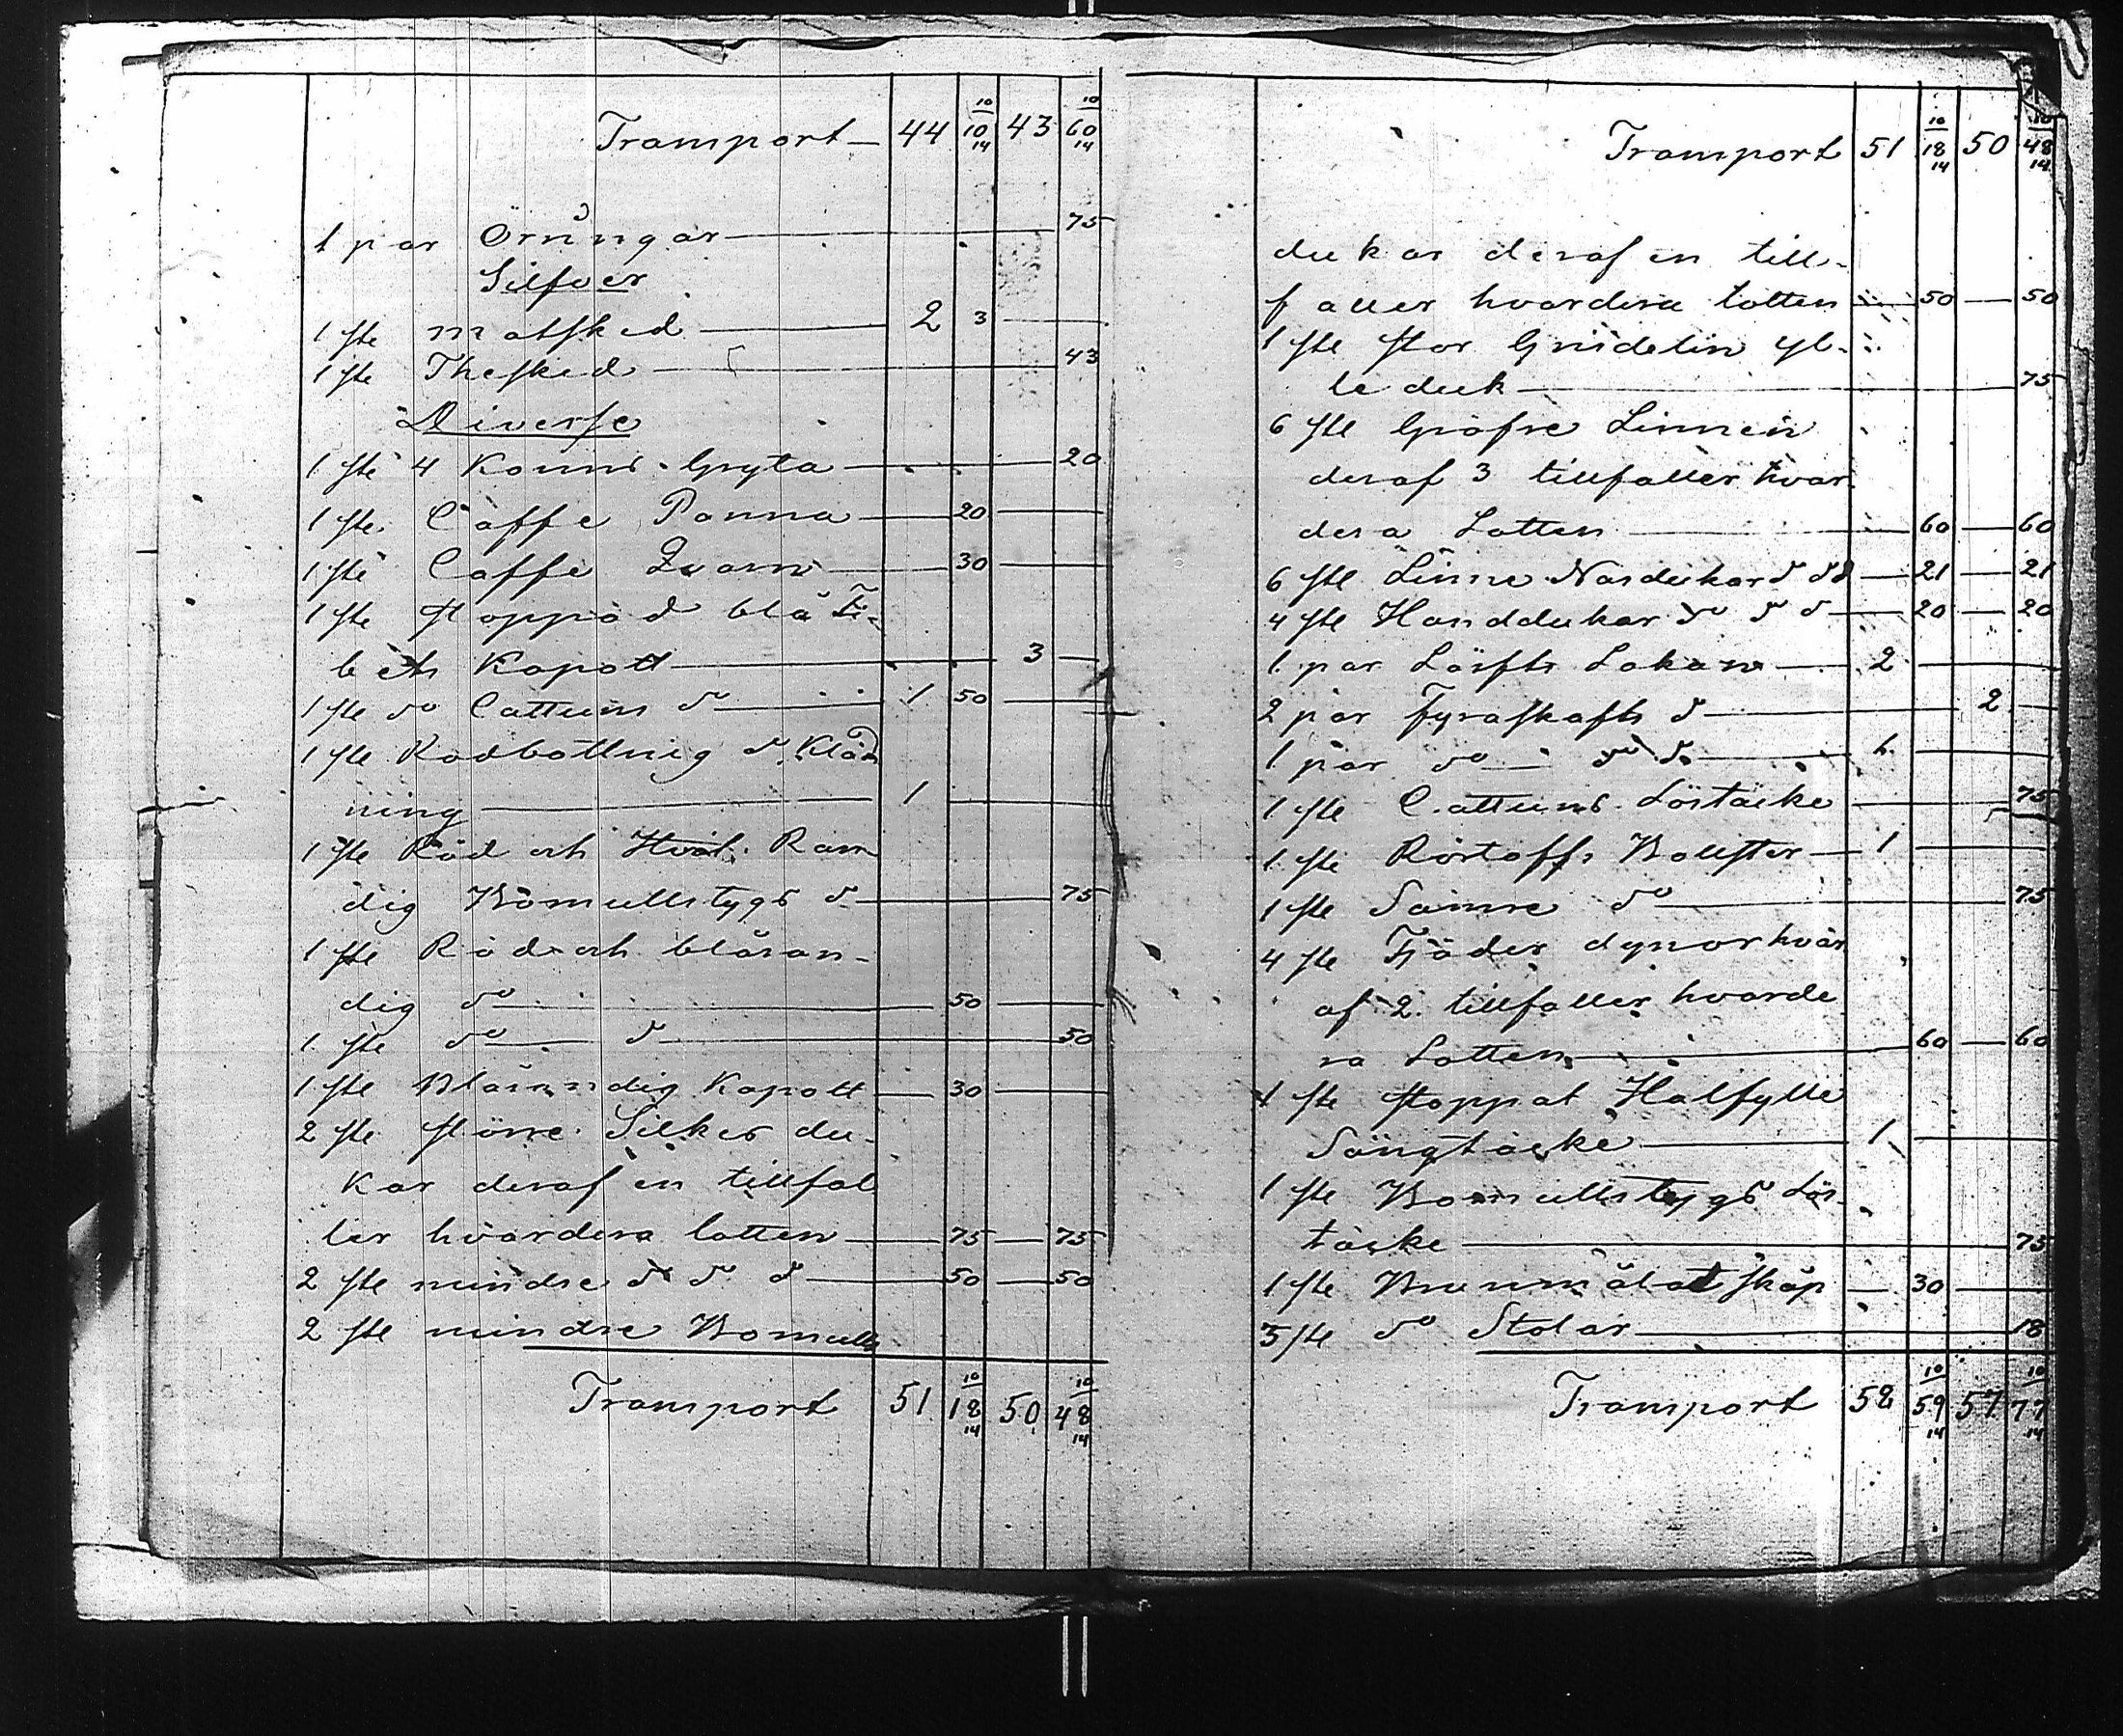 Transport — 44 10 10/14 43 10 60/14
1 par Örringar — 75
Silfver
1 ste matsked — 2 3 —
1 ste Thesked — 43
Diverse
1 ste 4 Kanns Gryta — 20
1 ste Caffe Panna — 20 —
1 ste Caffe Qvarn — 30 —
1 ste stoppad blå Ti-
bets Kapott — 3 —
1 ste do Cattuns do — 1 50 —
1 ste Rödbottnig do Kläd
ning — 1 —
1 ste Röd och Hvit Ran
dig Bomullstygs d — 75
1 ste Röd och blåran-
dig do — 50 —
1 ste do — d — 50
1 ste Blårandig Kapott — 30 —
2 ste större Silkes du-
kar deraf en tillfal
ler hvardera lotten — 75 — 75
2 ste mindre d d d — 50 — 50
2 ste mindre Bomulls
Transport 51 10 18/14 50 10 48/14
Transport 51 10 18/14 50 10 48/14
dukar deraf en till-
faller hvardera lotten — 50 — 50
1 ste stor Gridelin yl-
le duk — 75
6 ste Gröfre Linnen
deraf 3 tillfaller hvar
dera Lotten — 60 — 60
6 ste Linne Näsdukar d d d — 21 — 21
4 ste Handdukar do d d — 20 — 20
1 par Lärfts Lakan — 2 —
2 par Fyraskafts d — 2 —
1 par do — do d — 1 —
1 ste Cattuns Löstäcke — 75
1 ste Bolster — 1 —
1 ste Sämre do — 75
4 ste Fjäder dynor hvar
af 2 tillfaller hvarde
ra Lotten — 60 — 60
1 ste stoppat Halfylle
Sängtäcke — 1 —
1 ste Bomullstygs Lös-
täcke — 75
1 ste Brunmålat skåp — 30 —
3 ste do Stolar — 18
Transport 58 10 59/14 57 10 77/14